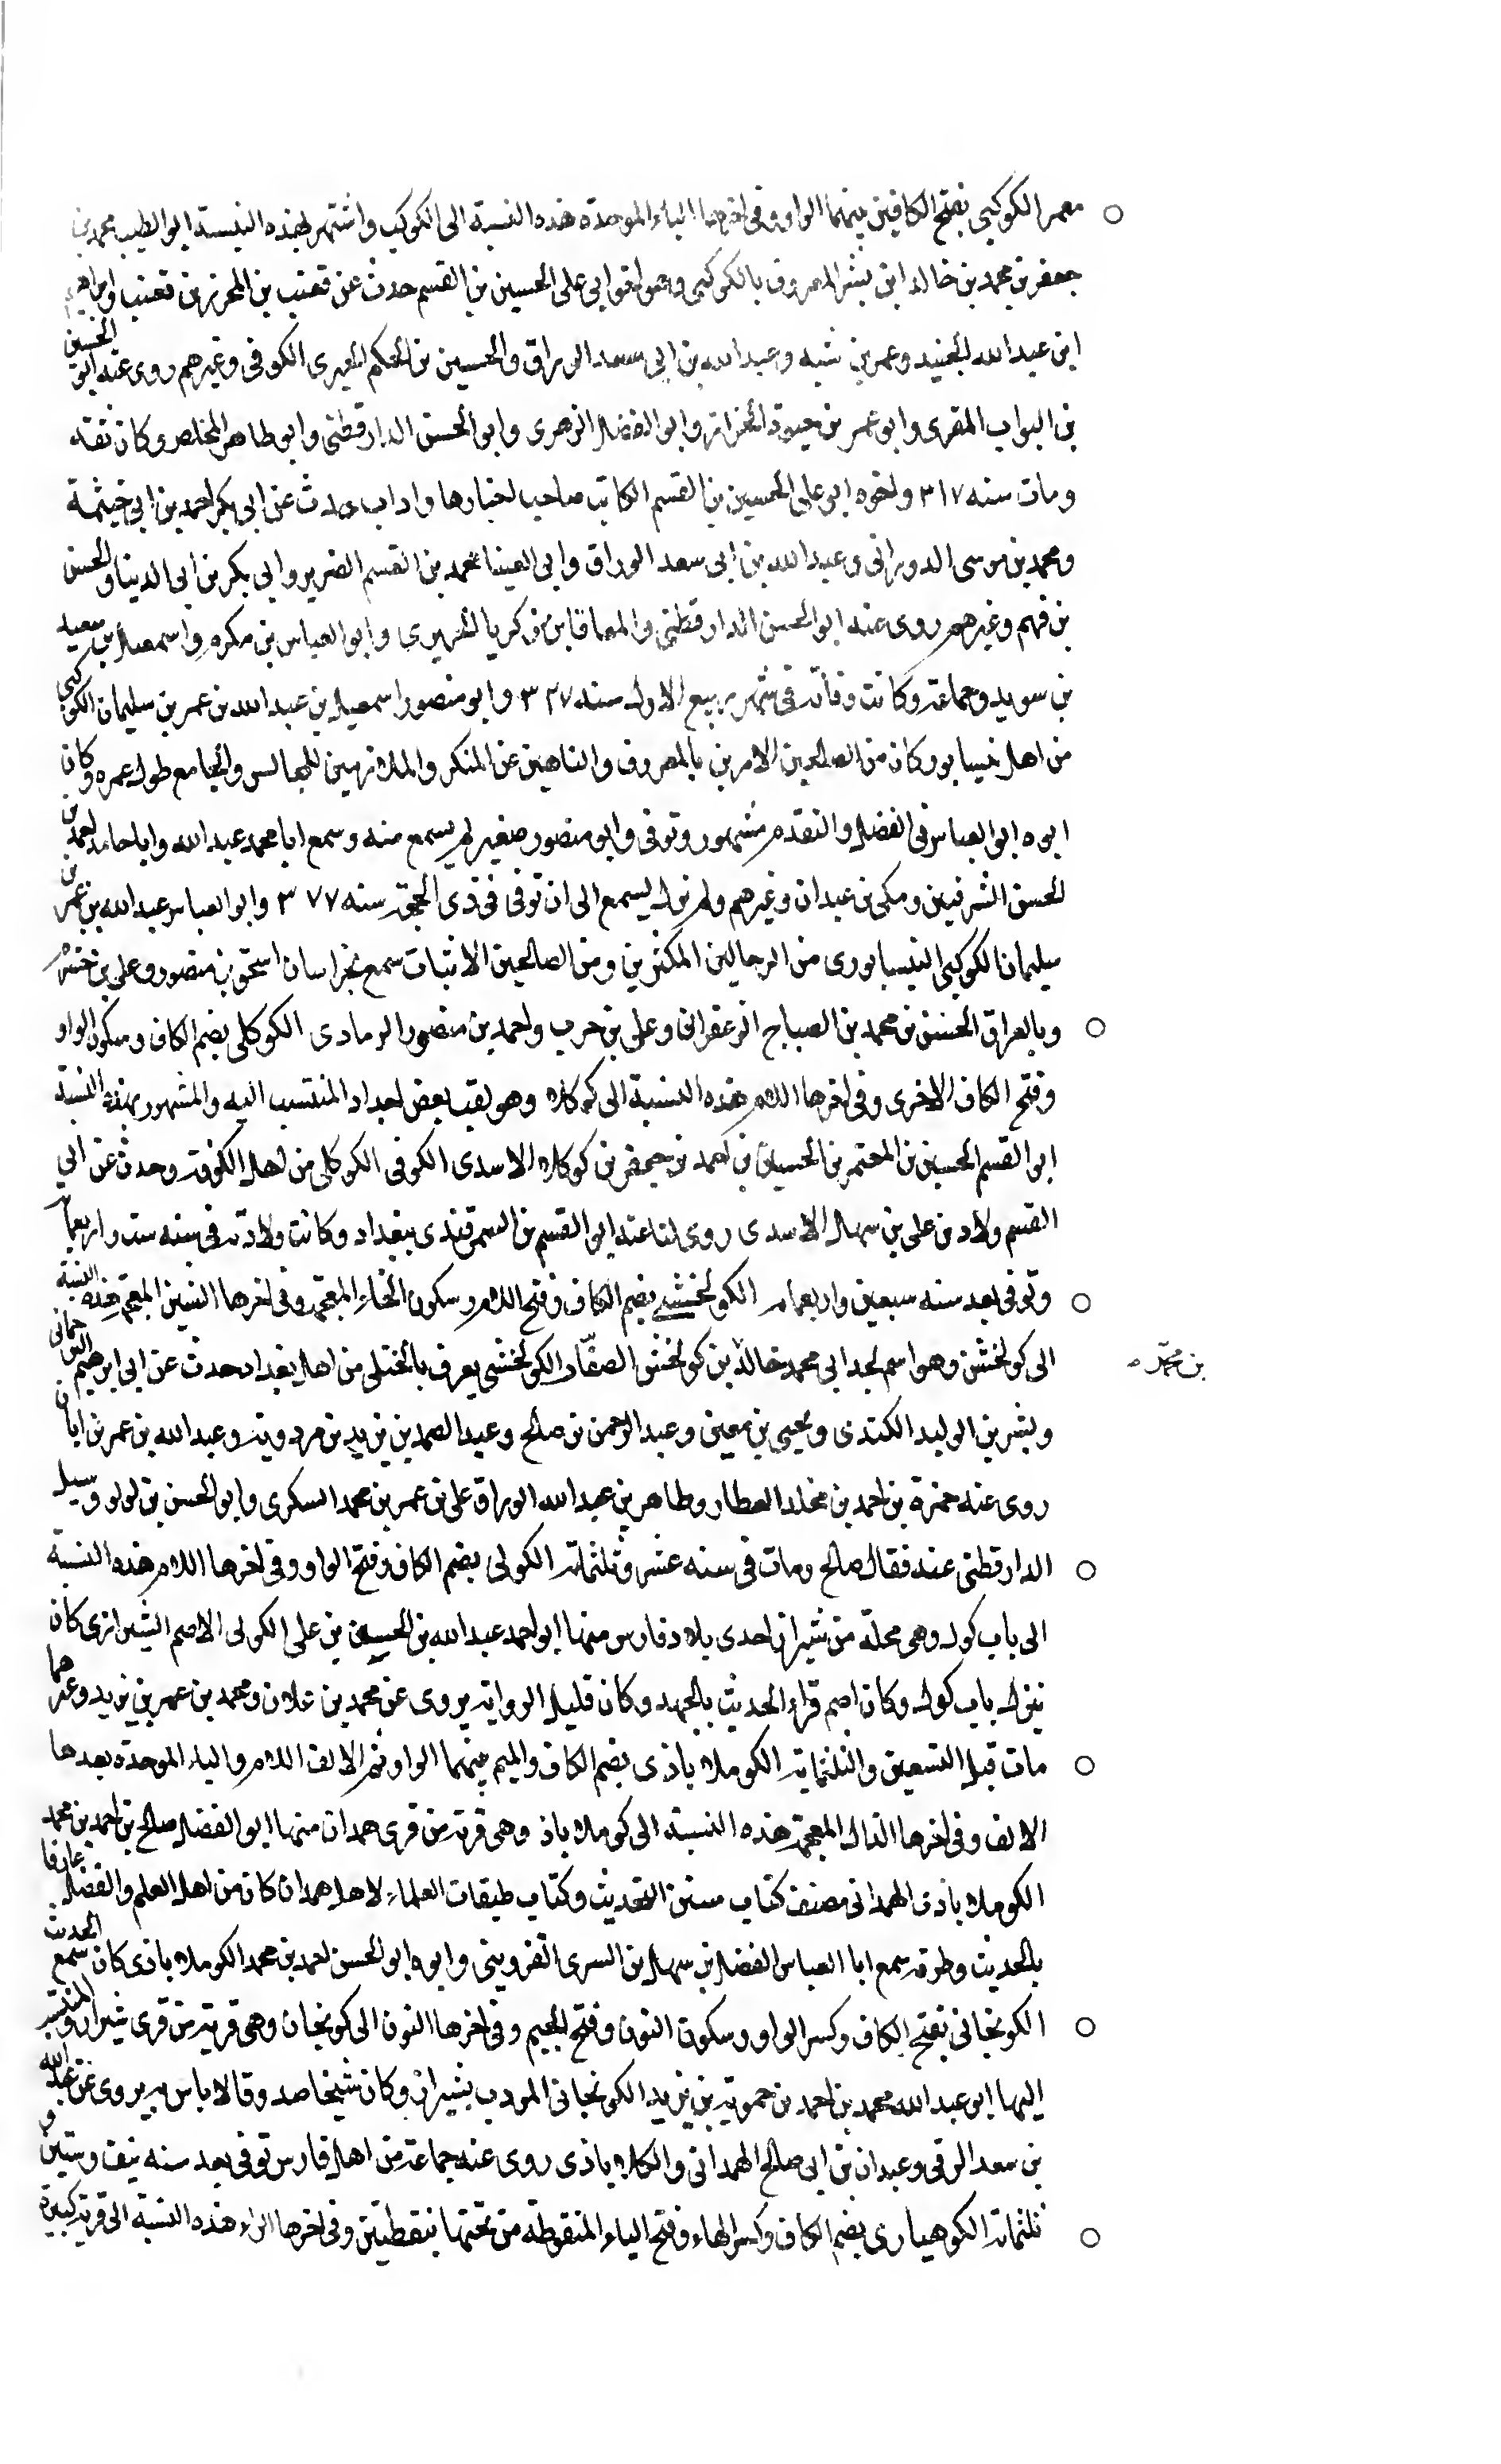 معمر الكوكبى بفتح الكافين بينهما الواو وفى اخرها الباء الموحده هذه النسبة الى الكوكب واشتهر بهذه النسبة ابو الطيب محمد بن
جعفر بن محمد بن خالد ابن بشر المعروف بالكوكبى وهو اخو ابى على الحسين بن القسم حدث عن قعنب بن المحرز بن قعنب وابراهيم
ابن عبد الله الجنيد وعمر بن شبه وعبد الله بن ابى سعد الوراق والحسين بن الحكم الحيرى الكوفى وغيرهم روى عنه ابو الحسين
بن البواب المقرى وابو عمر بن حيوة الخزاز وابو الفضل الزهرى وابو الحسن الدارقطنى وابو طاهر المخلص وكان ثقة
ومات سنه ٣١٧ واخوه ابو على الحسين بن القسم الكاتب صاحب اخبارها واداب حدث عن ابى بكر احمد بن ابى خيثمة
ومحمد بن موسى الدورانى وعبد الله بن ابى سعد الوراق وابى العينا محمد بن القسم الضرير وابى بكر بن ابى الدنيا والحسن
بن فهم وغيرهم روى عنه ابو الحسن الدارقطنى والمعافا بن زكريا النهروى وابو العباس بن مكرم واسمعيل بن سعيد
بن سويد وجماعة وكانت وفاته فى شهر ربيع الاول سنه ٣٢٧ وابو منصور اسمعيل بن عبد الله بن عمر بن سليمان الكوكبى
من اهل نيسابور كان من الصالحين الامرين بالمعروف والناهين عن المنكر والملازمين للمجالس والجامع طول عمره وكان
ابوه ابو العباس فى الفضل والتقدم مشهور وتوفى وابو منصور صغير لم يسمع منه وسمع ابا محمد عبد الله وابا حامد احمد بن
الحسن الشرقيين ومكى بن عبدان وغيرهم ولم يزل يسمع الى ان توفى فى ذى الحجة سنه ٣٧٧ وابو العباس عبد الله بن عمر بن
سليمان الكوكبى النيسابورى من الرحالين المكثرين ومن الصالحين الاثبات سمع بخراسان اسحق بن منصور وعلى بن خشرم
وبالعراق الحسن بن محمد بن الصباح الزعفرانى وعلى بن حرب واحمد بن منصور الرمادى الكوكلى بضم الكاف وسكون الواو
وفتح الكاف الاخرى وفى اخرها اللام هذه النسبة الى كوكله وهو لقب بعض اجداد المنتسب اليه والمشهور بهذه النسبة
ابو القسم الحسين بن المعتمر بن الحسين بن احمد بن جعفر بن كوكله الاسدى الكوفى الكوكلى من اهل الكوفة وحدث عن ابى
القسم ولاد بن على بن سهل الاسدى روى لنا عنه ابو القسم بن السمرقندى ببغداد وكانت ولادته فى سنه ست واربعمائة
وتوفى بعد سنه سبعين واربعماه الكولخشى بضم الكاف وفتح اللام وسكون الخاء المعجمه وفى اخرها الشين المعجمه هذه النسبة
الى كولخش وهو اسم لجد ابى محمد خالد بن كولخش الصفّار الكولخشى يعرف بالختلى من اهل بغداد حدث عن ابى ابرهيم الترجمانى
بن محمد
وبشر بن الوليد الكندى ويحيى بن معين وعبد الرحمن بن صالح وعبد الصمد بن يزيد بن مردويه وعبد الله بن عمر بن ابان
روى عنه حمزة بن احمد بن مخلد العطار وطاهر بن عبد الله الوراق على بن عمر بن محمد السكرى وابو الحسن بن لولو وسيل
الدارقطنى عنه فقال صالح ومات فى سنه عشر وثلثمائه الكولى بضم الكاف وفتح الواو وفى اخرها اللام هذه النسبة
الى باب كول وهى محلة من شيراز احدى بلاد فارس منها ابو احمد عبد الله بن الحسين بن على الكولى الاصم الشيرازى كان
ينزل باب كول وكان اصم قراء الحديث بالجهد وكان قليل الروايه يروى عن محمد بن علان ومحمد بن عمر بن يزيد وغيرهما
مات قبل التسعين والثلثمايه الكوملاباذى بضم الكاف والميم بينهما الواو ثم الالف اللام والباء الموحدة بعدها
الالف وفى اخرها الذال المعجمه هذه النسبة الى كوملاباذ وهى قرية من قرى همدان منها ابو الفضل صالح بن احمد بن محمد
الكوملاباذى الهمدانى مصنف كتاب سنن التحديث وكتاب طبقات العلماء لاهل همدان كان من اهل العلم والفضل عارفا
بالحديث وطرقه سمع ابا العباس الفضل بن سهل بن السرى القزوينى وابوه ابو الحسن احمد بن محمد الكوملاباذى كان سمع الحديث
الكونجانى بفتح الكاف وكسر الواو وسكون النون وفتح الجيم وفى اخرها النون الى كونجان وهى قرية من قرى شيراز والمنتسب
اليها ابو عبد الله محمد بن احمد بن حمويه بن يزيد الكونجانى المودب بشيراز وكان شيخا صدوقا لا باس به يروى عن عبد الله
بن سعد الرقى وعبدان بن ابى صالح الهمدانى والكلاباذى روى عنه جماعة من اهل فارس توفى بعد سنه نيف وستين و
ثلثمائه الكوهيارى بضم الكاف وكسر الهاء وفتح الياء المنقوطة من تحتها بنقطتين وفى اخرها الراء هذه النسبة الى قرية كبيرة